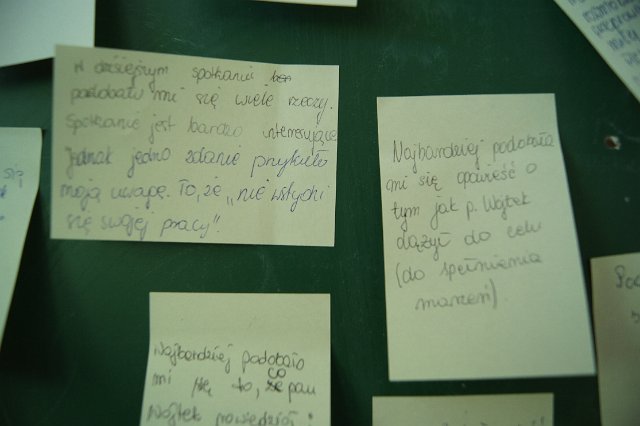 W dzisiejszym spotkaniu
podobało mi się wiele rzeczy.
Spotkanie jest bardzo interesujące
jednak jedno zdanie przykuło
moją uwagę. To, że „nie wstydzi
się swojej pracy".
Najbardziej podobała
mi się opowieść o
tym jak p. Wojtek
dążył do celu
(do spełnienia
marzeń).
Najbardziej podobało
mi się to, co pan
Wojtek powiedział
się